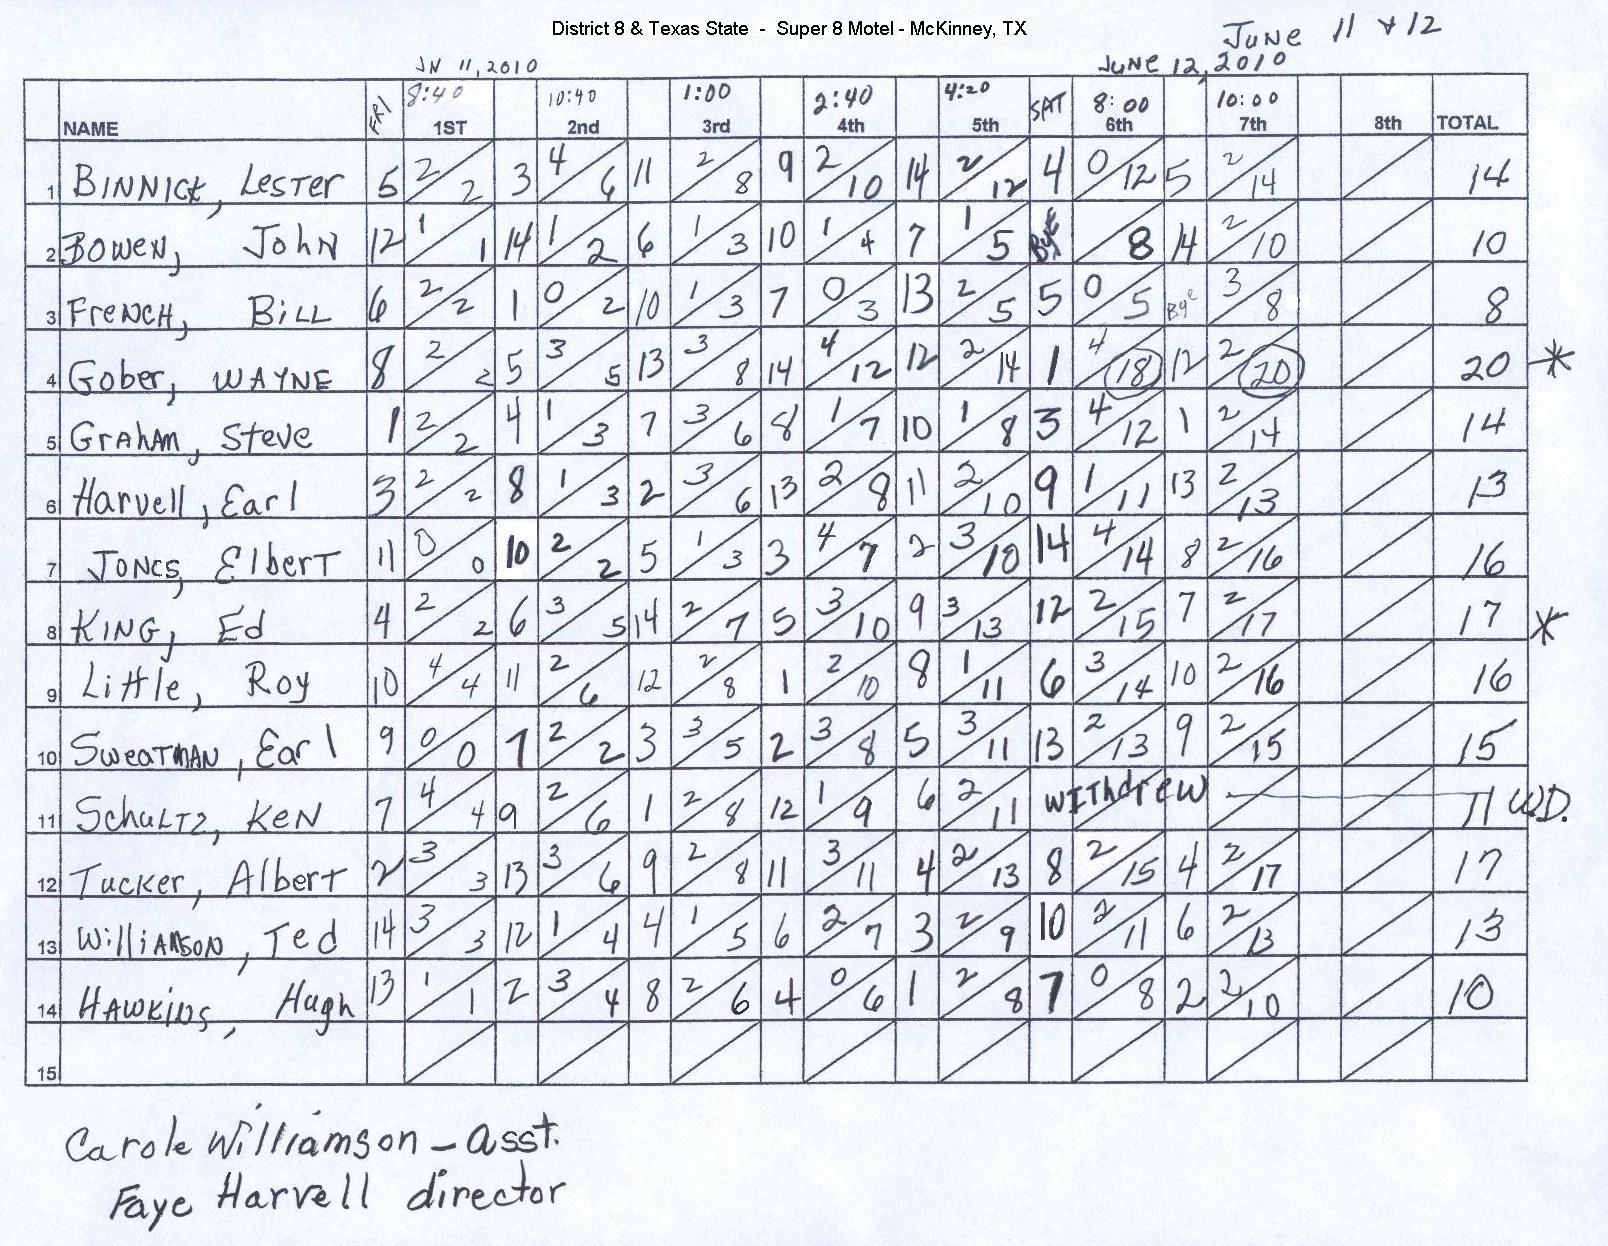 District 8 & Texas State - Super 8 Motel - McKinney, TX
June 11 & 12
JN 11, 2010 June 12, 2010
NAME FRI 8:40 1ST 10:40 2nd 1:00 3rd 2:40 4th 4:20 5th SAT 8:00 6th 10:00 7th 8th TOTAL
1 BINNICK, Lester 5 2/2 3 4/6 11 2/8 9 2/10 14 2/12 4 0/12 5 2/14 14
2 Bowen, John 12 1/1 14 1/2 6 1/3 10 1/4 7 1/5 Bye 8 14 2/10 10
3 French, Bill 6 2/2 1 0/2 10 1/3 7 0/3 13 2/5 5 0/5 Bye 3/8 8
4 Gober, WAYNE 8 2/2 5 3/5 13 3/8 14 4/12 12 2/14 1 4/18 12 2/20 20 *
5 Graham, Steve 1 2/2 4 1/3 7 3/6 8 1/7 10 1/8 3 4/12 1 2/14 14
6 Harvell, Earl 3 2/2 8 1/3 2 3/6 13 2/8 11 2/10 9 1/11 13 2/13 13
7 Jones, Elbert 11 0/0 10 2/2 5 1/3 3 4/7 2 3/10 14 4/14 8 2/16 16
8 KING, Ed 4 2/2 6 3/5 14 2/7 5 3/10 9 3/13 12 2/15 7 2/17 17 *
9 Little, Roy 10 4/4 11 2/6 12 2/8 1 2/10 8 1/11 6 3/14 10 2/16 16
10 Sweatman, Earl 9 0/0 7 2/2 3 3/5 2 3/8 5 3/11 13 2/13 9 2/15 15
11 Schultz, Ken 7 4/4 9 2/6 1 2/8 12 1/9 6 2/11 WITHdrew 11 W.D.
12 Tucker, Albert 2 3/3 13 3/6 9 2/8 11 3/11 4 2/13 8 2/15 4 2/17 17
13 Williamson, Ted 14 3/3 12 1/4 4 1/5 6 2/7 3 2/9 10 2/11 6 2/13 13
14 Hawkins, Hugh 13 1/1 2 3/4 8 2/6 4 0/6 1 2/8 7 0/8 2 2/10 10
15
Carole Williamson - asst.
Faye Harvell director